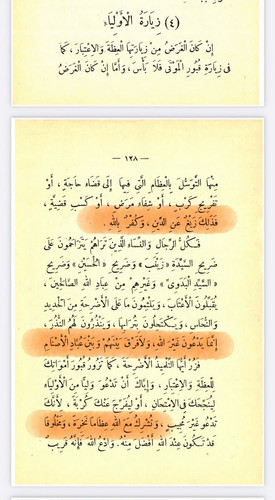 (٤) زِيَارَةُ الْأَوْلِيَاءِ
إِنْ كَانَ الْغَرَضُ مِنْ زِيَارَتِهَا الْعِظَةَ وَالِاعْتِبَارَ، كَمَا
فِى زِيَارَةِ قُبُورِ الْمَوْتَى فَلَا بَأْسَ، وَأَمَّا إِنْ كَانَ الْغَرَضُ
— ١٢٨ —
مِنْهَا التَّوَسُّلَ بِالْعِظَامِ الَّتِى فِيهَا إِلَى قَضَاءِ حَاجَةٍ، أَوْ
تَفْرِيجِ كَرْبٍ، أَوْ شِفَاءِ مَرَضٍ، أَوْ كَسْبِ قَضِيَّةٍ،
فَذَلِكَ زَيْغٌ عَنِ الدِّينِ، وَكُفْرٌ بِاللهِ.
فَكُلُّ الرِّجَالِ وَالنِّسَاءِ الَّذِينَ تَرَاهُمْ يَتَزَاحَمُونَ عَلَى
ضَرِيحِ السَّيِّدَةِ «زَيْنَبَ» وَضَرِيحِ «الْحُسَيْنِ» وَضَرِيحِ
«السَّيِّدِ الْبَدَوِىِّ» وَغَيْرِهِمْ مِنْ عِبَادِ اللهِ الصَّالِحِينَ،
يُقَبِّلُونَ الْأَعْتَابَ، وَيَلْثِمُونَ مَا عَلَى الْأَضْرِحَةِ مِنَ الْحَدِيدِ
وَالنُّحَاسِ، وَيَكْتَحِلُونَ بِتُرَابِهَا، وَيَنْذُرُونَ لَهُمُ النُّذُرَ،
إِنَّمَا يَدْعُونَ غَيْرَ اللهِ، وَلَا فَرْقَ بَيْنَهُمْ وَبَيْنَ عُبَّادِ الْأَصْنَامِ
فَزُرْ أَيُّهَا التِّلْمِيذُ الْأَضْرِحَةَ، كَمَا تَزُورُ قُبُورَ أَمْوَاتِكَ
لِلْعِظَةِ وَالِاعْتِبَارِ، وَإِيَّاكَ أَنْ تَدْعُوَ وَلِيًّا مِنَ الْأَوْلِيَاءِ
لِيُنْجِحَكَ فِى الِامْتِحَانِ، أَوْ لِيُفَرِّجَ عَنْكَ كُرْبَةً، لِأَنَّكَ
تَدْعُو غَيْرَ مُجِيبٍ، وَتُشْرِكُ مَعَ اللهِ عِظَامًا نَخِرَةً، وَمَخْلُوقًا
قَدْ تَكُونُ عِنْدَ اللهِ أَفْضَلَ مِنْهُ. وَادْعُ اللهَ فَإِنَّهُ قَرِيبٌ